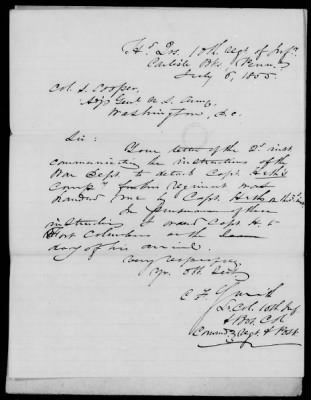 Hd. Qrs. 10th Regt of Inf.
Carlisle Bks, Penna
July 6, 1855.
Col. S. Cooper,
Adjt Genl U. S. Army,
Washington, D.C.
Sir:
Your letter of the 2d inst
communicating the instructions of the
War Dept. to detach Capt. Heth's
Compy from this Regiment was
handed me by Capt. Heth on the
In pursuance of these
instructions I order Capt. H. to
Fort Columbus on the same
day of his arrival.
Very respectfully,
Yr. Obt. Servt
C. F. Smith
Lt Col. 10th Inf
& Bvt. Col
Comndg Regt. & Post